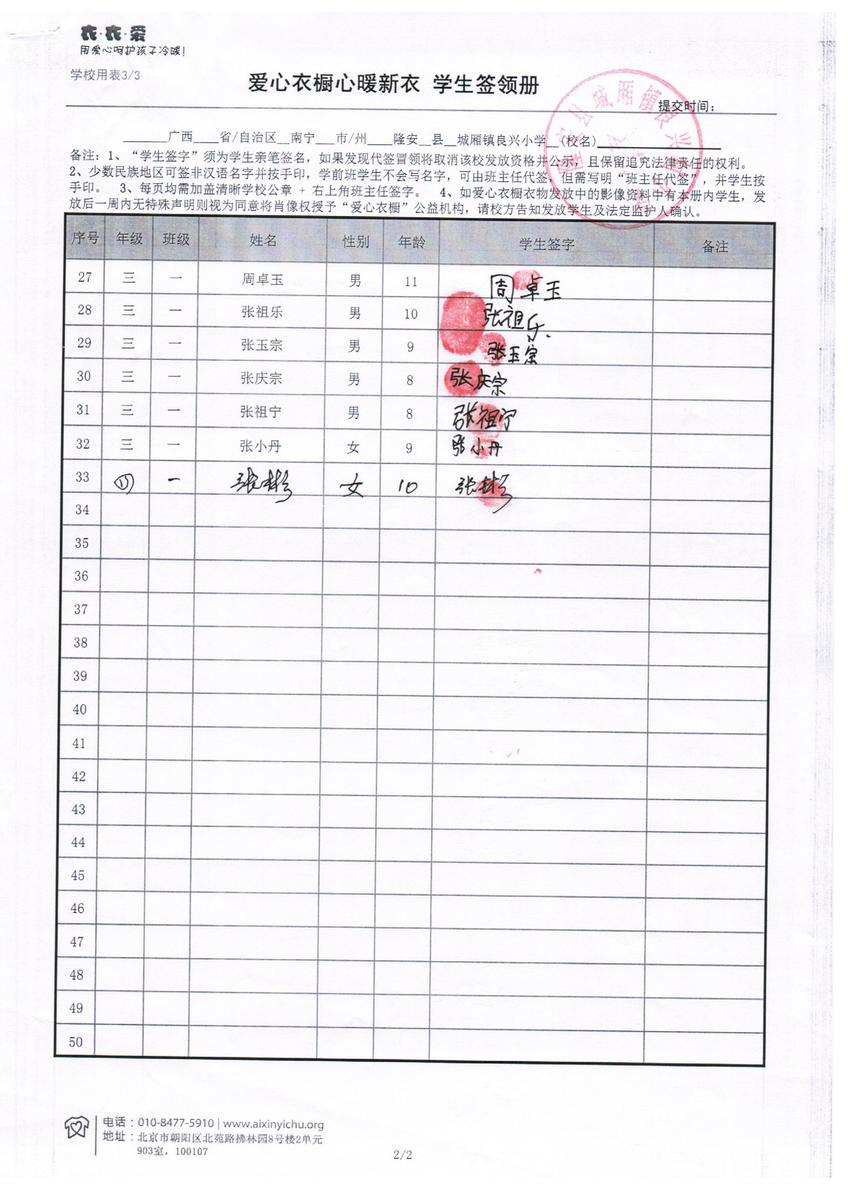 衣·衣·爱
用爱心呵护孩子冷暖！
学校用表3/3
爱心衣橱心暖新衣 学生签领册
提交时间：
______广西____省/自治区__南宁___市/州____隆安__县__城厢镇良兴小学__(校名)
备注：1、“学生签字”须为学生亲笔签名，如果发现代签冒领将取消该校发放资格并公示，且保留追究法律责任的权利。
2、少数民族地区可签非汉语名字并按手印，学前班学生不会写名字，可由班主任代签，但需写明“班主任代签”，并学生按
手印。 3、每页均需加盖清晰学校公章 + 右上角班主任签字。 4、如爱心衣橱衣物发放中的影像资料中有本册内学生，发
放后一周内无特殊声明则视为同意将肖像权授予“爱心衣橱”公益机构，请校方告知发放学生及法定监护人确认。
序号 年级 班级 姓名 性别 年龄 学生签字 备注
27 三 一 周卓玉 男 11 周卓玉
28 三 一 张祖乐 男 10 张祖乐
29 三 一 张玉宗 男 9 张玉宗
30 三 一 张庆宗 男 8 张庆宗
31 三 一 张祖宁 男 8 张祖宁
32 三 一 张小丹 女 9 张小丹
33 一 张彬 女 10 张彬
34
35
36
37
38
39
40
41
42
43
44
45
46
47
48
49
50
电话：010-8477-5910 | www.aixinyichu.org
地址：北京市朝阳区北苑路拂林园8号楼2单元
903室，100107
2/2